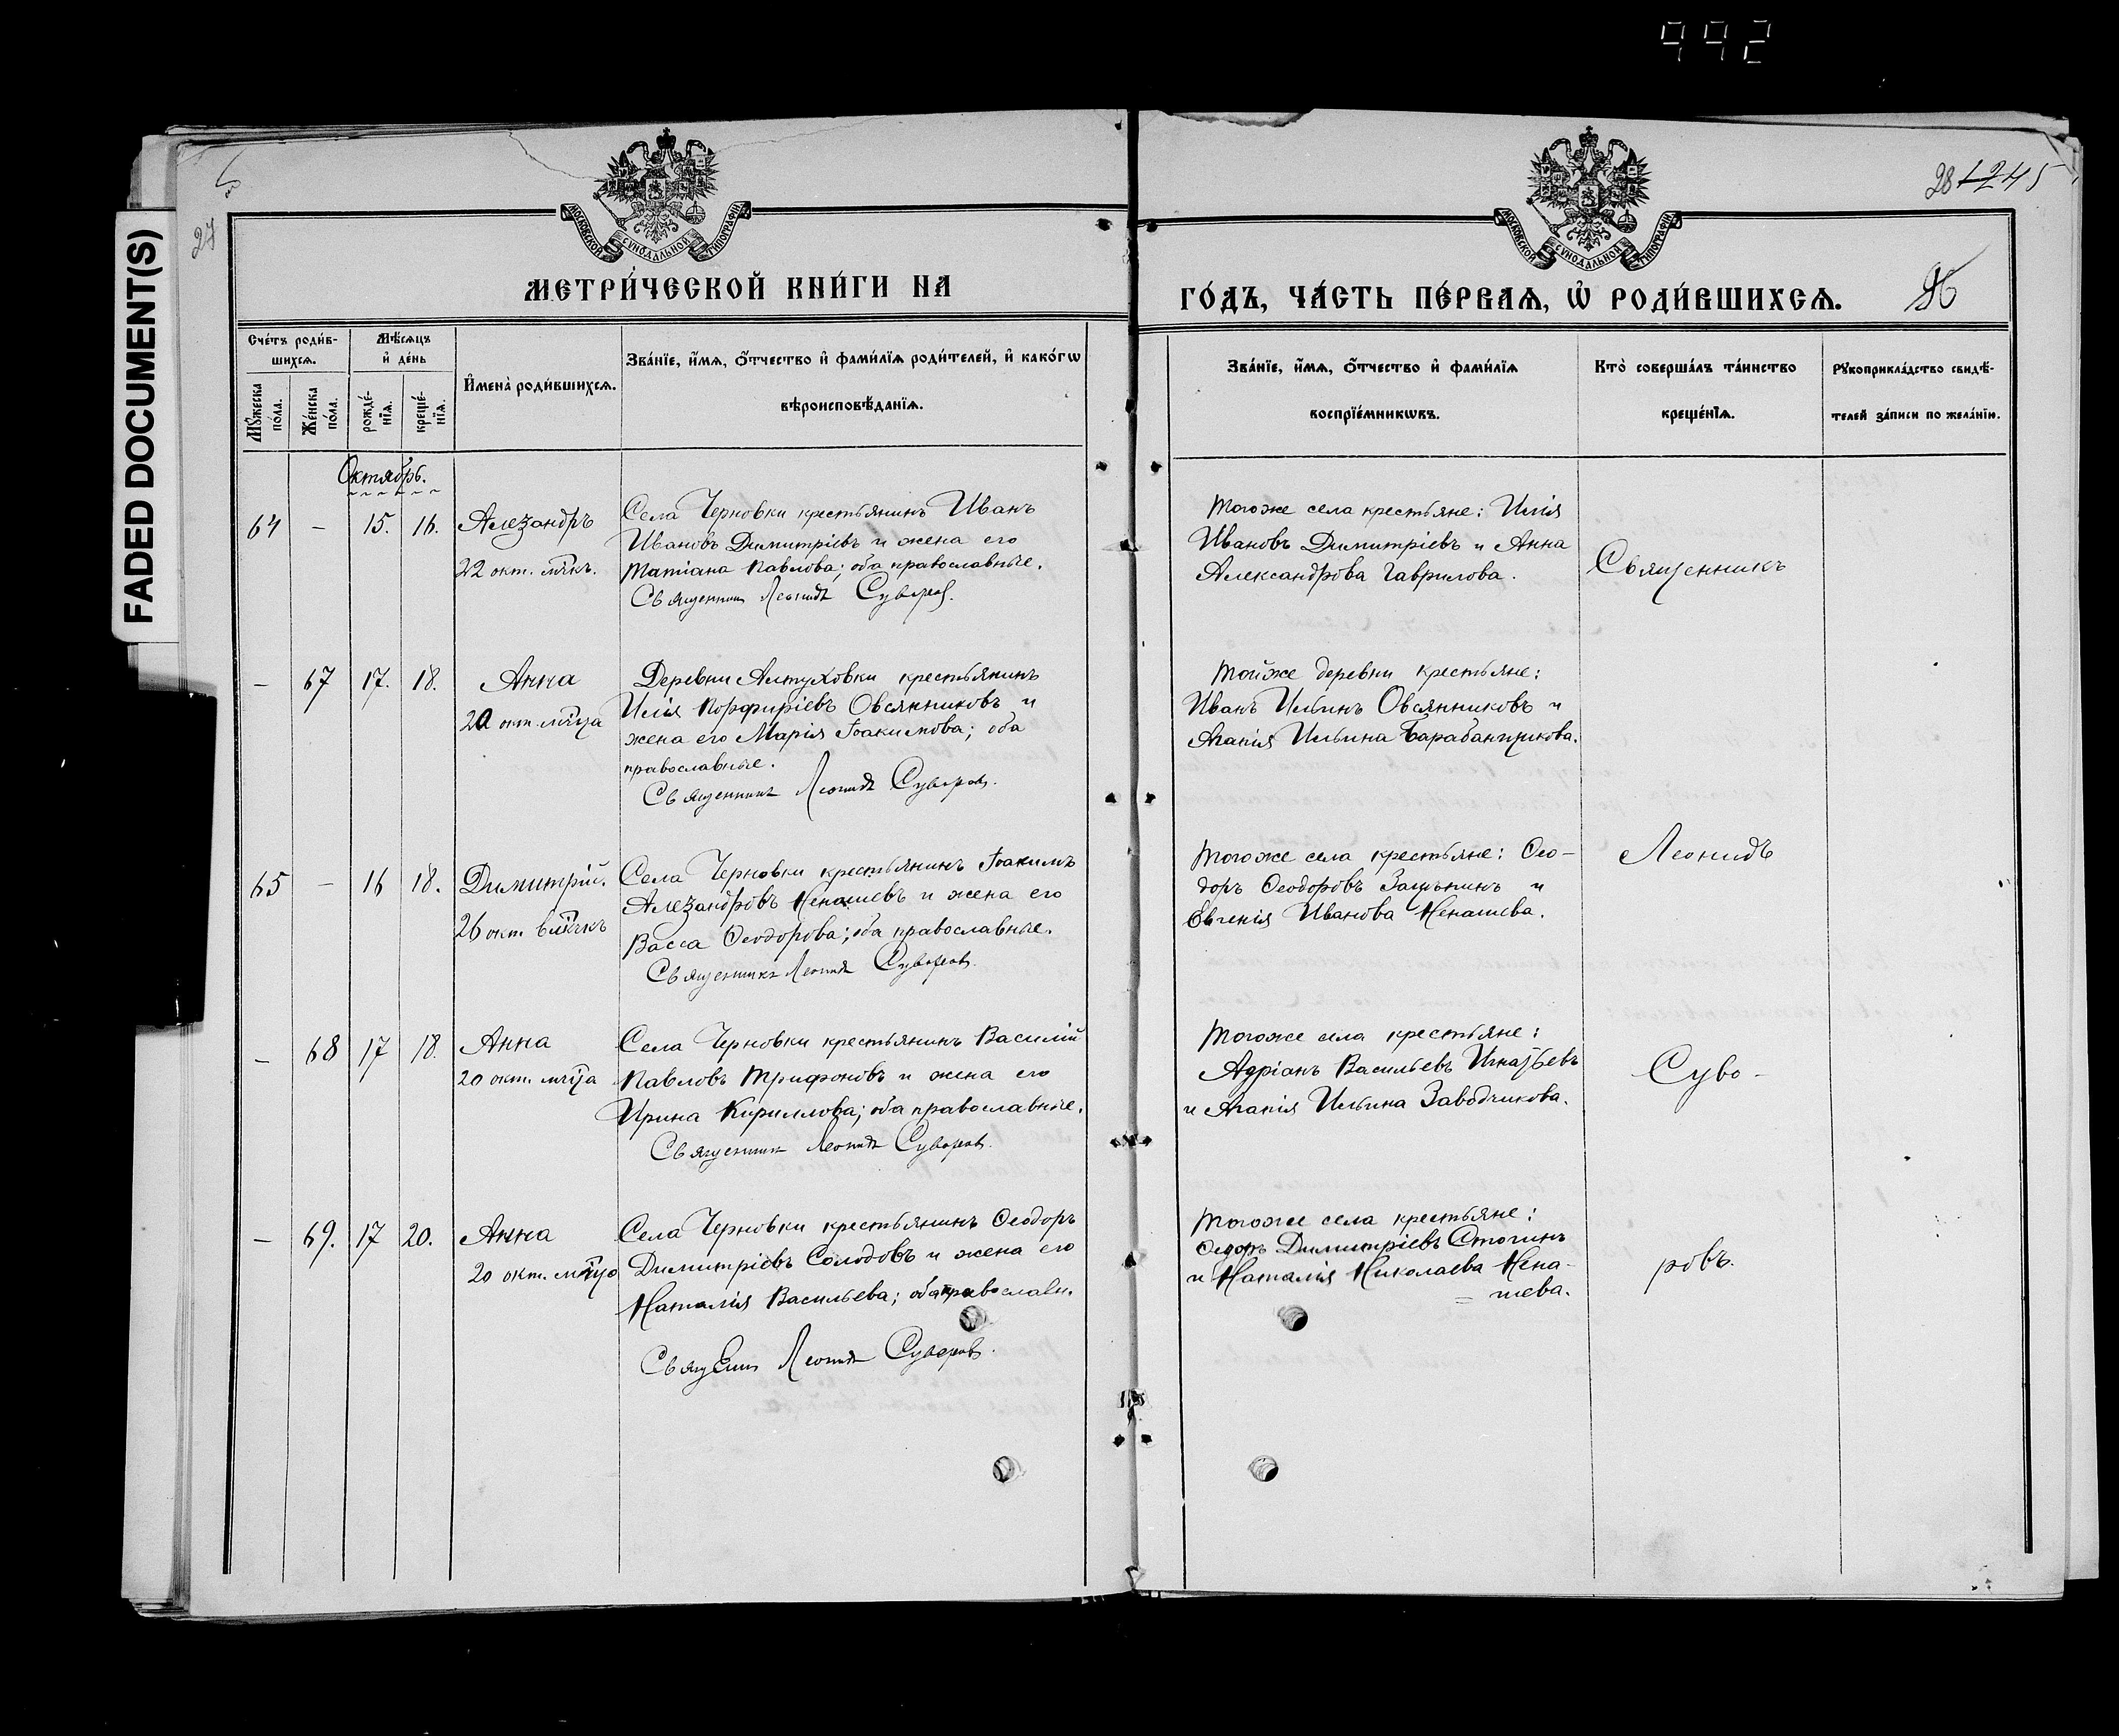 992
FADED DOCUMENT(S)
27
28 1245
МОСКОВСКОЙ СѴНОДАЛЬНОЙ ТИПОГРАФІИ
МОСКОВСКОЙ СѴНОДАЛЬНОЙ ТИПОГРАФІИ
МЕТРИ́ЧЕСКОЙ КНИ́ГИ НА
ГО́ДЪ, ЧА́СТЬ ПЕ́РВАѦ, Ѡ҆ РОДИ́ВШИХСѦ.
Сче́тъ роди́в-
шихсѧ.
Мѣ́сѧцъ
и҆ де́нь
Мꙋ́жеска
по́ла.
Же́нска
по́ла.
рожде́-
нїѧ.
креще́-
нїѧ.
И҆мена̀ роди́вшихсѧ.
Зва́нїе, и҆́мѧ, ѻ҆́тчество и҆ фами́лїѧ роди́телей, и҆ како́гѡ
вѣроисповѣ́данїѧ.
Зва́нїе, и҆́мѧ, ѻ҆́тчество и҆ фами́лїѧ
воспрїе́мникѡвъ.
Кто̀ соверша́лъ та́инство
креще́нїѧ.
Рꙋкоприкла́дство свидѣ́-
телей за́писи по жела́нїю.
Октябрь.
64 – 15. 16. Алеѯандръ
22 окт.
Села Черновки крестьянинъ Иванъ
Ивановъ Димитріевъ и жена его
Татіана Павлова; оба православные.
Священникъ Леонидъ Суворовъ.
Тогоже села крестьяне: Илія
Ивановъ Димитріевъ и Анна
Александрова Гаврилова.
Священникъ
– 67 17. 18. Анна
20 окт. мц̃а
Деревни Алтуховки крестьянинъ
Илія Порфиріевъ Овсянниковъ и
жена его Марія Іоакимова; оба
православные.
Священникъ Леонидъ Суворовъ.
Тойже деревни крестьяне:
Иванъ Ильинъ Овсянниковъ и
Агапія Ильина Барабанщикова.
65 – 16 18. Димитрій.
26 окт.
Села Черновки крестьянинъ Іоакимъ
Алеѯандровъ Ненашевъ и жена его
Васса Ѳеодорова; оба православные.
Священникъ Леонидъ Суворовъ.
Тогоже села крестьяне: Ѳео-
доръ Ѳеодоровъ и
Евгенія Иванова Ненашева.
Леонидъ
– 68 17 18. Анна
20 окт. мц̃а
Села Черновки крестьянинъ Василій
Павловъ Трифоновъ и жена его
Ирина Кириллова; оба православные.
Священникъ Леонидъ Суворовъ.
Тогоже села крестьяне:
Адріанъ Васильевъ Игнатьевъ
и Агапія Ильина Заводчикова.
Суво-
– 69. 17 20. Анна
20 окт.
Села Черновки крестьянинъ Ѳеодоръ
Димитріевъ Солодовъ и жена его
Наталія Васильева; оба православн.
Священникъ Леонидъ Суворовъ.
Тогоже села крестьяне:
Ѳедоръ Димитріевъ Стогинъ
и Наталія Николаева Нена-
= шева.
ровъ.